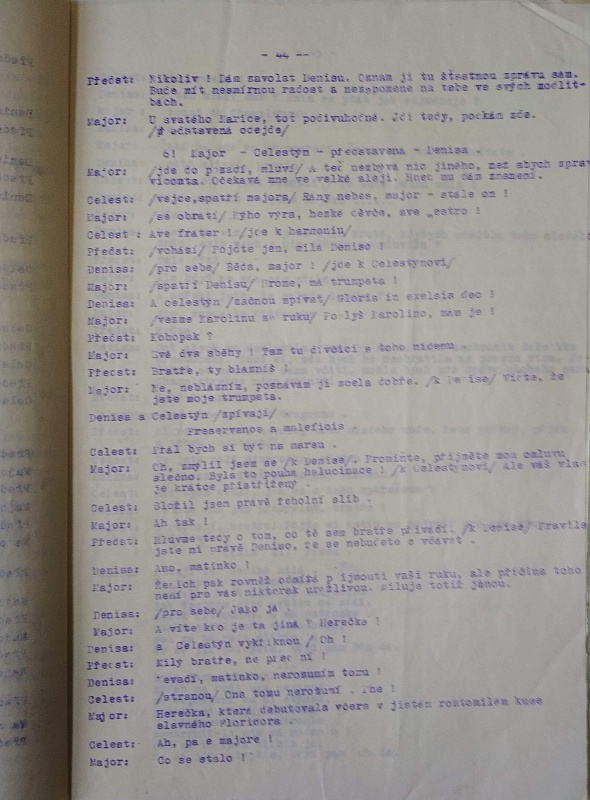 - 44 -
Předst: Nikoliv ! Dám zavolat Denisu. Oznam jí tu šťastnou zprávu sám.
Bude mít nesmírnou radost a nezapomene na tebe ve svých modlit-
bách.
Major: U svatého Marice, toť podivuhodné. Jdi tedy, počkám zde.
/představená odejde/
6! Major - Celestýn - představená - Denisa .
Major: /jde do pozadí, mluví/ A teď nezbývá nic jiného, než abych zprav
vicomta. Očekává mne ve velké aleji. Hned mu dám znamení.
Celest: /vejde,spatří majora/ Rány nebes, major - stále on !
Major: /se obrátí/ Týho výra, hezké děvče, ave sestro !
Celest : Ave frater ! /jde k harmoniu/
Předst: /vchází/ Pojďte jen, milá Deniso !
Denisa: /pro sebe/ Běda, major ! /jde k Celestynovi/
Major: /spatří Denisu/ Hrome, má trumpeta !
Denisa: A celestýn /začnou zpívat/ Gloria in exelsis deo !
Major: /vezme Karolinu za ruku/ Poslyš Karolino, mám je !
Předst: Kohopak ?
Major: Své dva sběhy ! Tam tu dívčici s toho ničemu
Předst: Bratře, ty blázníš !
Major: Ne, neblázním, poznávám ji zcela dobře. /k Denise/ Vidte, že
jste moje trumpeta.
Denisa a Celestýn /zpívají/
Preservence a maleficis .
Celest: Přál bych si být na marsu .
Major: Oh, zmýlil jsem se /k Denise/. Promiňte, přijměte mou omluvu
slečno. Byla to pouhá halucinace ! /k Celestynovi/ Ale váš vlas
je krátce přistřižený .
Celest: Složil jsem právě řeholní slib .
Major: Ah tak !
Předst: Mluvme tedy o tom, co tě sem bratře přivádí. /k Denise/ Pravila
jste mi právě Deniso, že se nebudete vdávat .
Denisa: Ano, matinko !
Major: Ženich pak rovněž odmítá přijmouti vaši ruku, ale příčina toho
není pro vás nikterak urážlivou. Miluje totiž jinou.
Denisa: /pro sebe/ Jako já
Major: A víte kdo je ta jiná ? Herečka !
Denisa: a Celestýn vykřiknou / Oh !
Předst: Milý bratře, ne před ní !
Denisa: Nevadí, matinko, nerozumím tomu !
Celest: /stranou/ Ona tomu nerozumí . Ane !
Major: Herečka, která debutovala včera v jistém roztomilém kuse
slavného Floridora .
Celest: Ah, pane majore !
Major: Co se stalo !